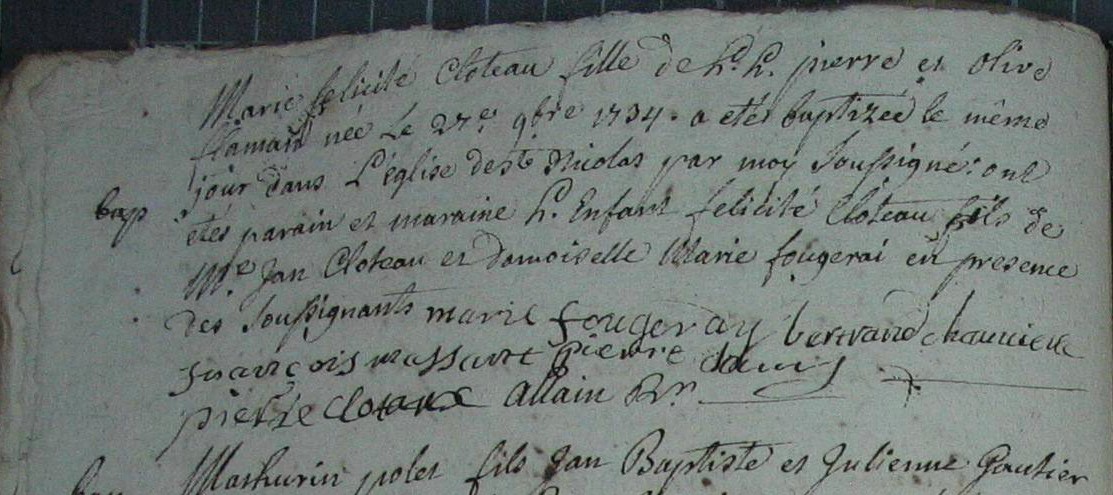 Marie felicité Cloteau fille de h. h. pierre et Olive
flamant née Le 27e. 9bre 1734. a etés baptizée le même
jour dans L'église de ste Nicolas par moy Soussigné: ont
bap etés parain et maraine h. Enfant felicité Cloteau fils de
Me Jan Cloteau et Damoiselle Marie fougerai en presence
des Soussignants marie fougeray bertrand
francois massart pierre
pierre Cloteau allain
Mathurin polet fils Jan Baptiste et Julienne Gautier